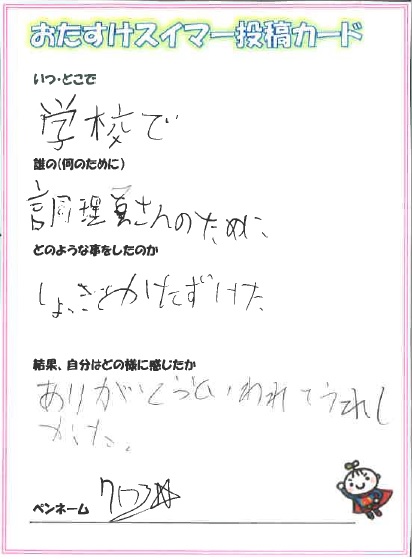 おたすけスイマー投稿カード
いつ・どこで
学校で
誰の(何のために)
調理員さんのために
どのような事をしたのか
しょっきをかたずけた
結果、自分はどの様に感じたか
ありがとうといわれてうれし
かった。
ペンネーム